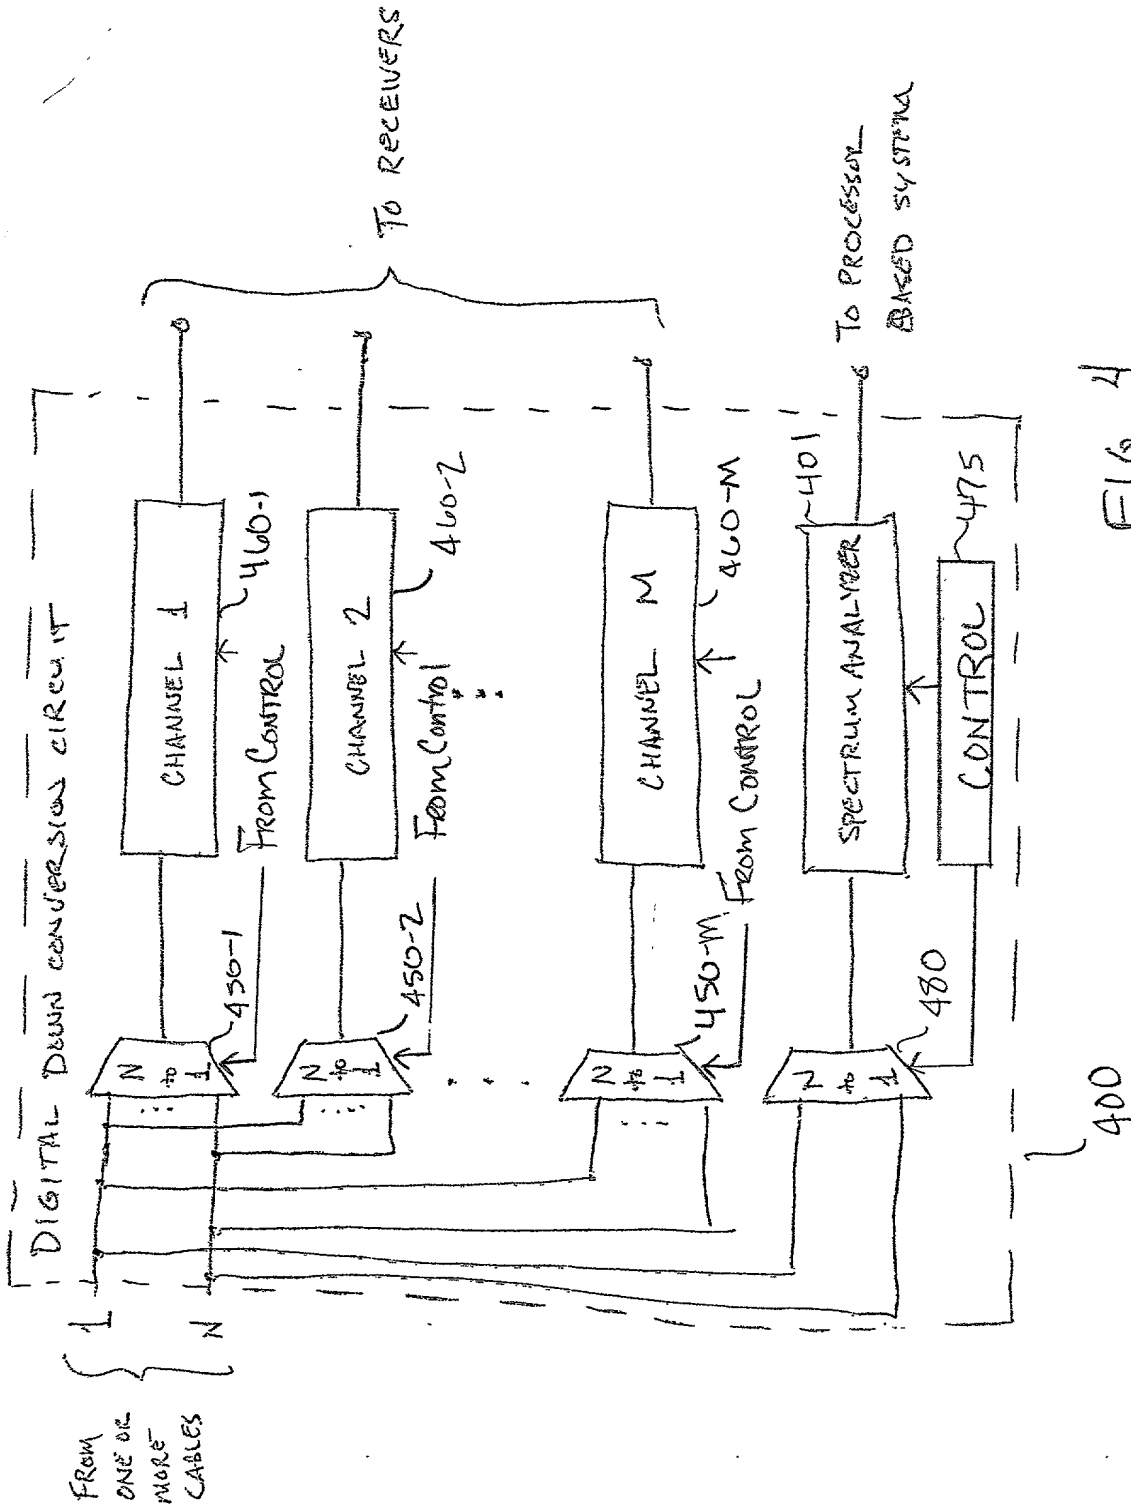 DIGITAL DOWN CONVERSION CIRCUIT
FROM
ONE OR
MORE
CABLES
1
N
N
to
1
450-1
CHANNEL 1
460-1
FROM CONTROL
N
to
1
450-2
CHANNEL 2
460-2
FROM Control
TO RECEIVERS
N
to
1
450-M
CHANNEL M
460-M
FROM CONTROL
N
to
1
480
SPECTRUM ANALYZER
401
TO PROCESSOR
BASED SYSTEM
CONTROL
475
400
FIG 4